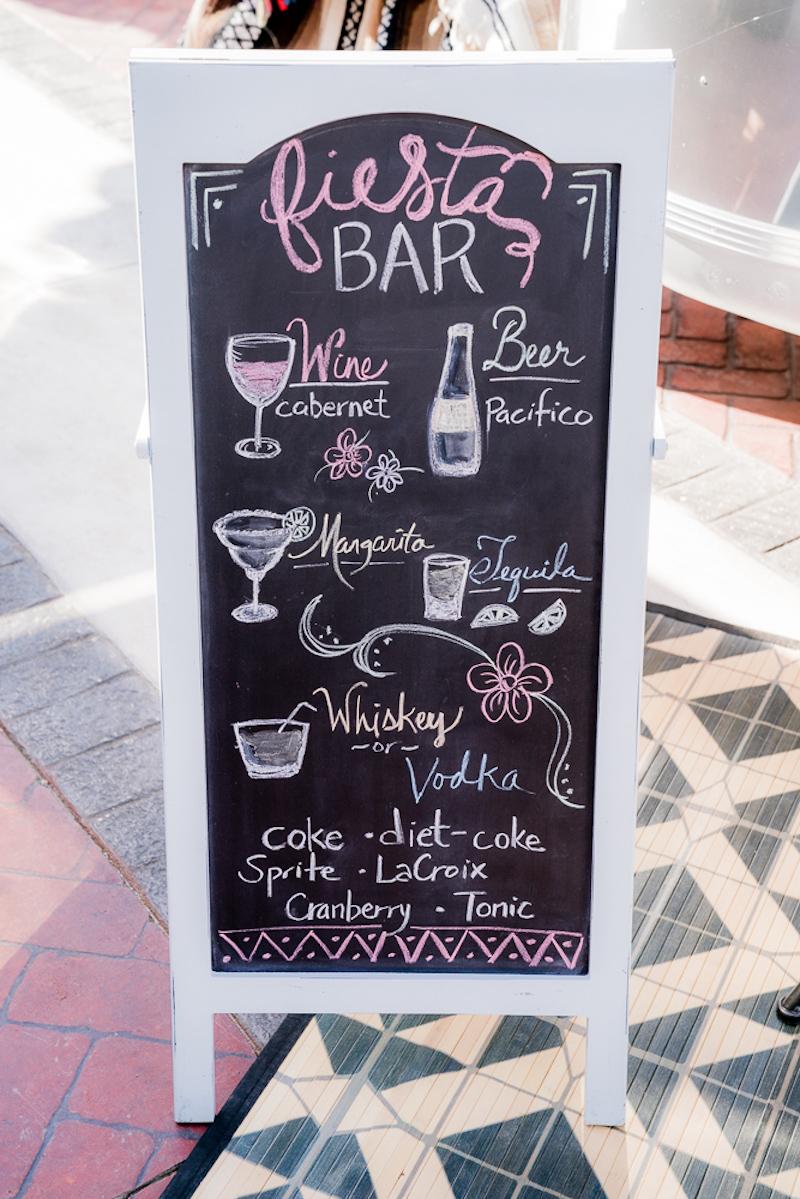 fiesta
BAR
Wine
cabernet
Beer
Pacifico
Margarita
Tequila
Whiskey
~or~
Vodka
coke · diet-coke
Sprite · LaCroix
Cranberry · Tonic